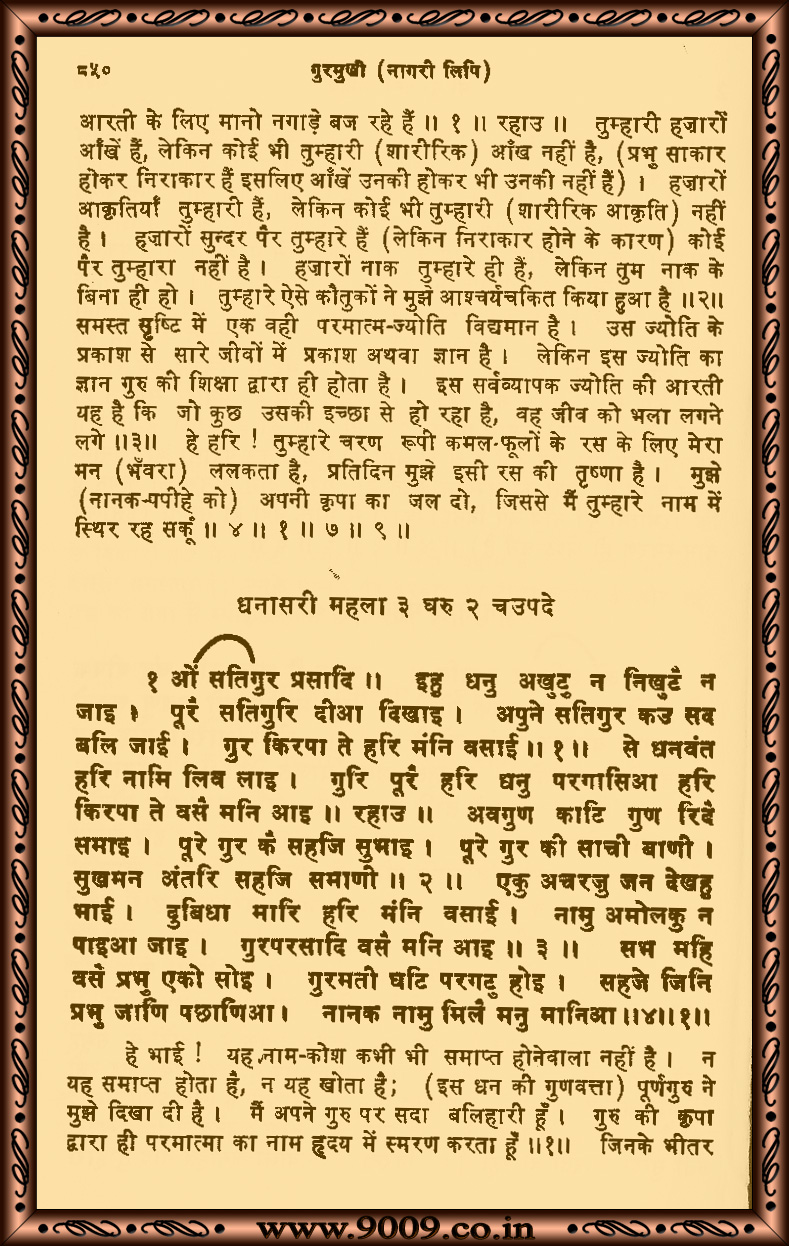 ८५० गुरमुखी (नागरी लिपि)
आरती के लिए मानो नगाड़े बज रहे हैं ॥ १ ॥ रहाउ ॥ तुम्हारी हज़ारों
आँखें हैं, लेकिन कोई भी तुम्हारी (शारीरिक) आँख नहीं है, (प्रभु साकार
होकर निराकार हैं इसलिए आँखें उनकी होकर भी उनकी नहीं हैं) । हज़ारों
आकृतियाँ तुम्हारी हैं, लेकिन कोई भी तुम्हारी (शारीरिक आकृति) नहीं
है । हज़ारों सुन्दर पैर तुम्हारे हैं (लेकिन निराकार होने के कारण) कोई
पैर तुम्हारा नहीं है । हज़ारों नाक तुम्हारे ही हैं, लेकिन तुम नाक के
बिना ही हो । तुम्हारे ऐसे कौतुकों ने मुझे आश्चर्यचकित किया हुआ है ॥२॥
समस्त सृष्टि में एक वही परमात्म-ज्योति विद्यमान है । उस ज्योति के
प्रकाश से सारे जीवों में प्रकाश अथवा ज्ञान है । लेकिन इस ज्योति का
ज्ञान गुरु की शिक्षा द्वारा ही होता है । इस सर्वव्यापक ज्योति की आरती
यह है कि जो कुछ उसकी इच्छा से हो रहा है, वह जीव को भला लगने
लगे ॥३॥ हे हरि ! तुम्हारे चरण रूपी कमल-फूलों के रस के लिए मेरा
मन (भँवरा) ललकता है, प्रतिदिन मुझे इसी रस की तृष्णा है । मुझे
(नानक-पपीहे को) अपनी कृपा का जल दो, जिससे मैं तुम्हारे नाम में
स्थिर रह सकूँ ॥ ४ ॥ १ ॥ ७ ॥ ९ ॥
धनासरी महला ३ घरु २ चउपदे
१ ओं सतिगुर प्रसादि ॥ इहु धनु अखुटु न निखुटै न
जाइ । पूरै सतिगुरि दीआ दिखाइ । अपुने सतिगुर कउ सद
बलि जाई । गुर किरपा ते हरि मंनि वसाई ॥ १ ॥ से धनवंत
हरि नामि लिव लाइ । गुरि पूरै हरि धनु परगासिआ हरि
किरपा ते वसै मनि आइ ॥ रहाउ ॥ अवगुण काटि गुण रिदै
समाइ । पूरे गुर कै सहजि सुभाइ । पूरे गुर की साची बाणी ।
सुखमन अंतरि सहजि समाणी ॥ २ ॥ एकु अचरजु जन देखहु
भाई । दुबिधा मारि हरि मंनि वसाई । नामु अमोलकु न
पाइआ जाइ । गुरपरसादि वसै मनि आइ ॥ ३ ॥ सभ महि
वसै प्रभु एको सोइ । गुरमती घटि परगटु होइ । सहजे जिनि
प्रभु जाणि पछाणिआ । नानक नामु मिलै मनु मानिआ ॥४॥१॥
हे भाई ! यह नाम-कोश कभी भी समाप्त होनेवाला नहीं है । न
यह समाप्त होता है, न यह खोता है; (इस धन की गुणवत्ता) पूर्णगुरु ने
मुझे दिखा दी है । मैं अपने गुरु पर सदा बलिहारी हूँ । गुरु की कृपा
द्वारा ही परमात्मा का नाम हृदय में स्मरण करता हूँ ॥१॥ जिनके भीतर
www.9009.co.in